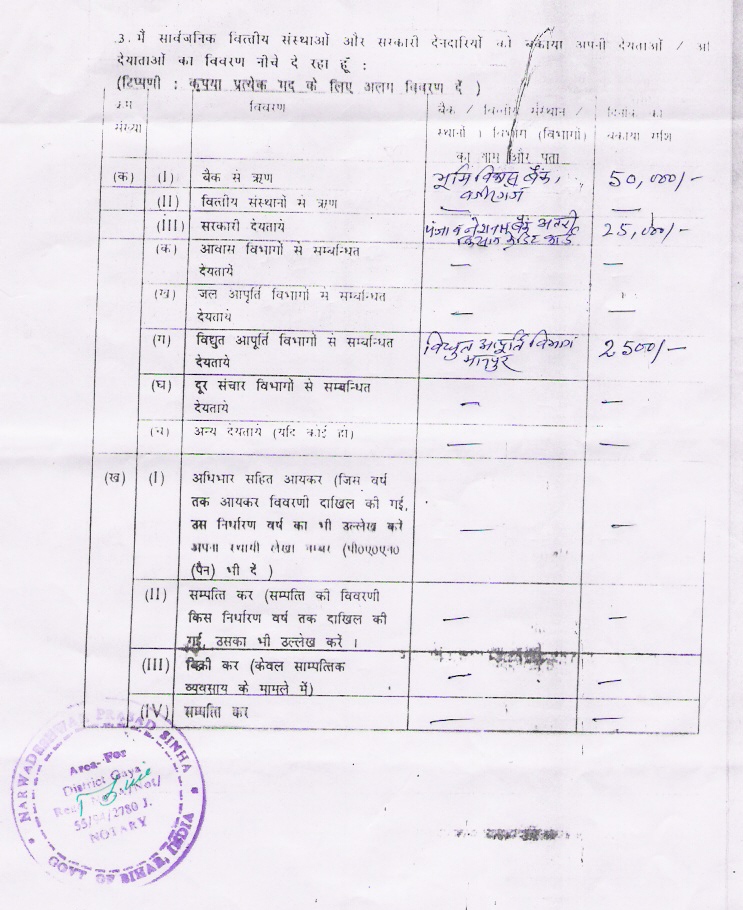 3. मैं सार्वजनिक वित्तीय संस्थाओं और सरकारी देनदारियों की बकाया अपनी देयताओं /
देयाताओं का विवरण नीचे दे रहा हूँ :
(टिप्पणी : कृपया प्रत्येक मद के लिए अलग विवरण दें )
क्रम संख्या
विवरण
बैंक / वित्तीय संस्थान /
स्थानो । विभाग (विभागों)
का नाम और पता
दिनांक को
बकाया राशि
(क) (I) बैंक से ऋण भूमि विकास बैंक, 50,000/-
वजीरगंज
(II) वित्तीय संस्थानो से ऋण —
(III) सरकारी देयताये पंजाब नेशनल बैंक अतरी 25,000/-
किसान क्रेडिट कार्ड
(क) आवास विभागों से सम्बन्धित — —
देयताये
(ख) जल आपूर्ति विभागों से सम्बन्धित — —
देयताये
(ग) विद्युत आपूर्ति विभागों से सम्बन्धित विद्युत आपूर्ति विभाग 2500/-
देयताये मानपुर
(घ) दूर संचार विभागों से सम्बन्धित
देयताये — —
अन्य देयताये (यदि कोई हो) — —
(ख) (I) अधिभार सहित आयकर (जिस वर्ष
तक आयकर विवरणी दाखिल की गई,
उस निर्धारण वर्ष का भी उल्लेख करें — —
अपना स्थायी लेखा नम्बर (पी०ए०एन०
(पैन) भी दें )
(II) सम्पत्ति कर (सम्पत्ति की विवरणी
किस निर्धारण वर्ष तक दाखिल की — —
गई, उसका भी उल्लेख करें ।
(III) बिक्री कर (केवल साम्पत्तिक — —
व्यवसाय के मामले में)
(IV) सम्पत्ति कर — —
NARWADESHWAR PRASAD SINHA
Area-For
District Gaya
55/84/2780 J.
NOTARY
GOVT OF BIHAR, INDIA